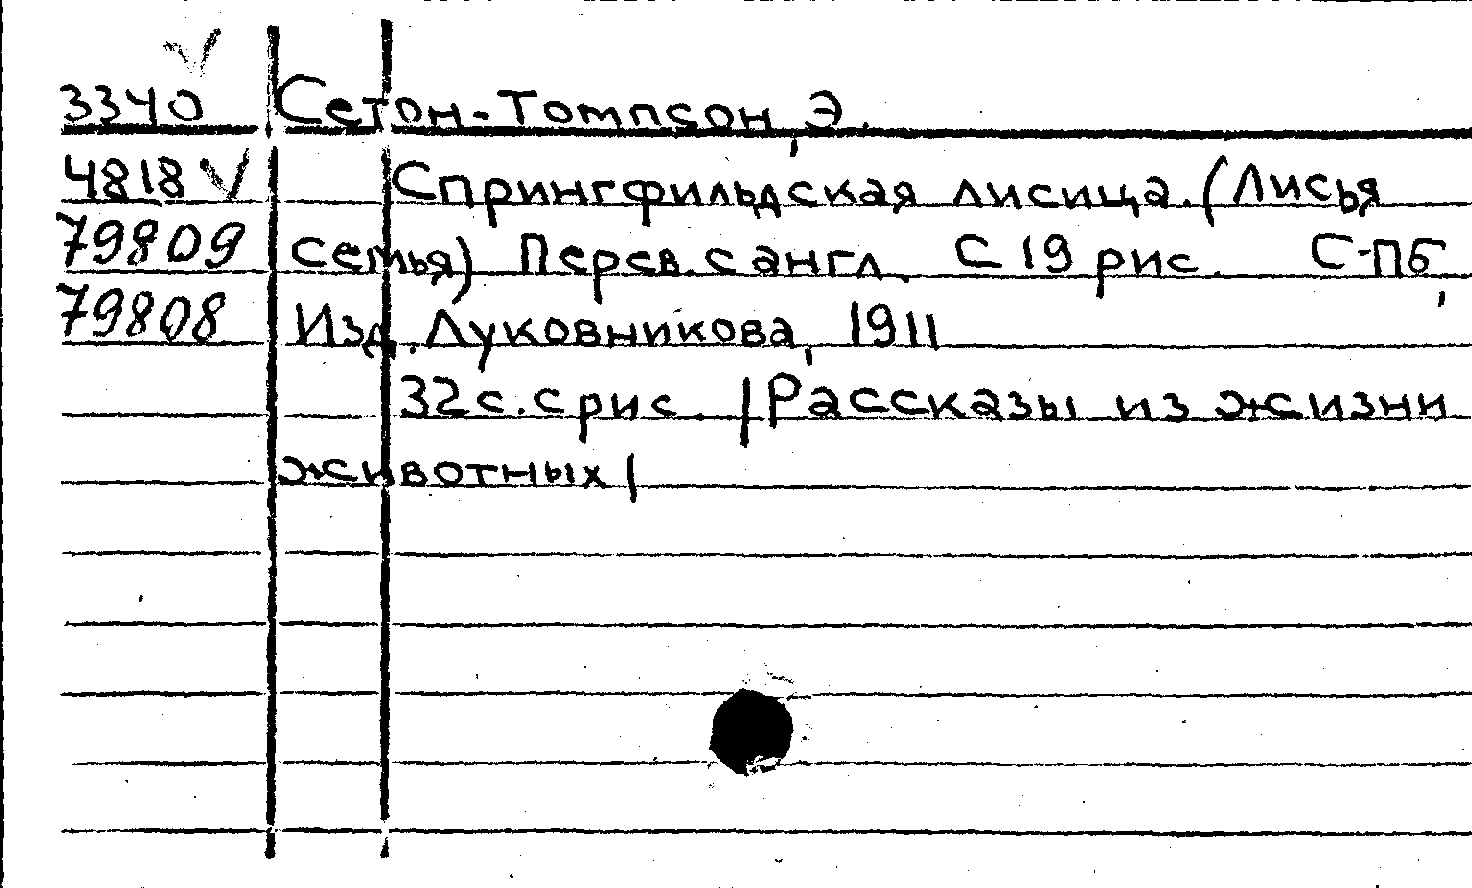 3340 Сетон-Томпсон, Э.
4818 V Спрингфильдская лисица. (Лисья
79809 семья) Перев. с англ. С 19 рис. С-ПБ,
79808 Изд. Луковникова, 1911
32 с. с рис. |Рассказы из жизни
животных|